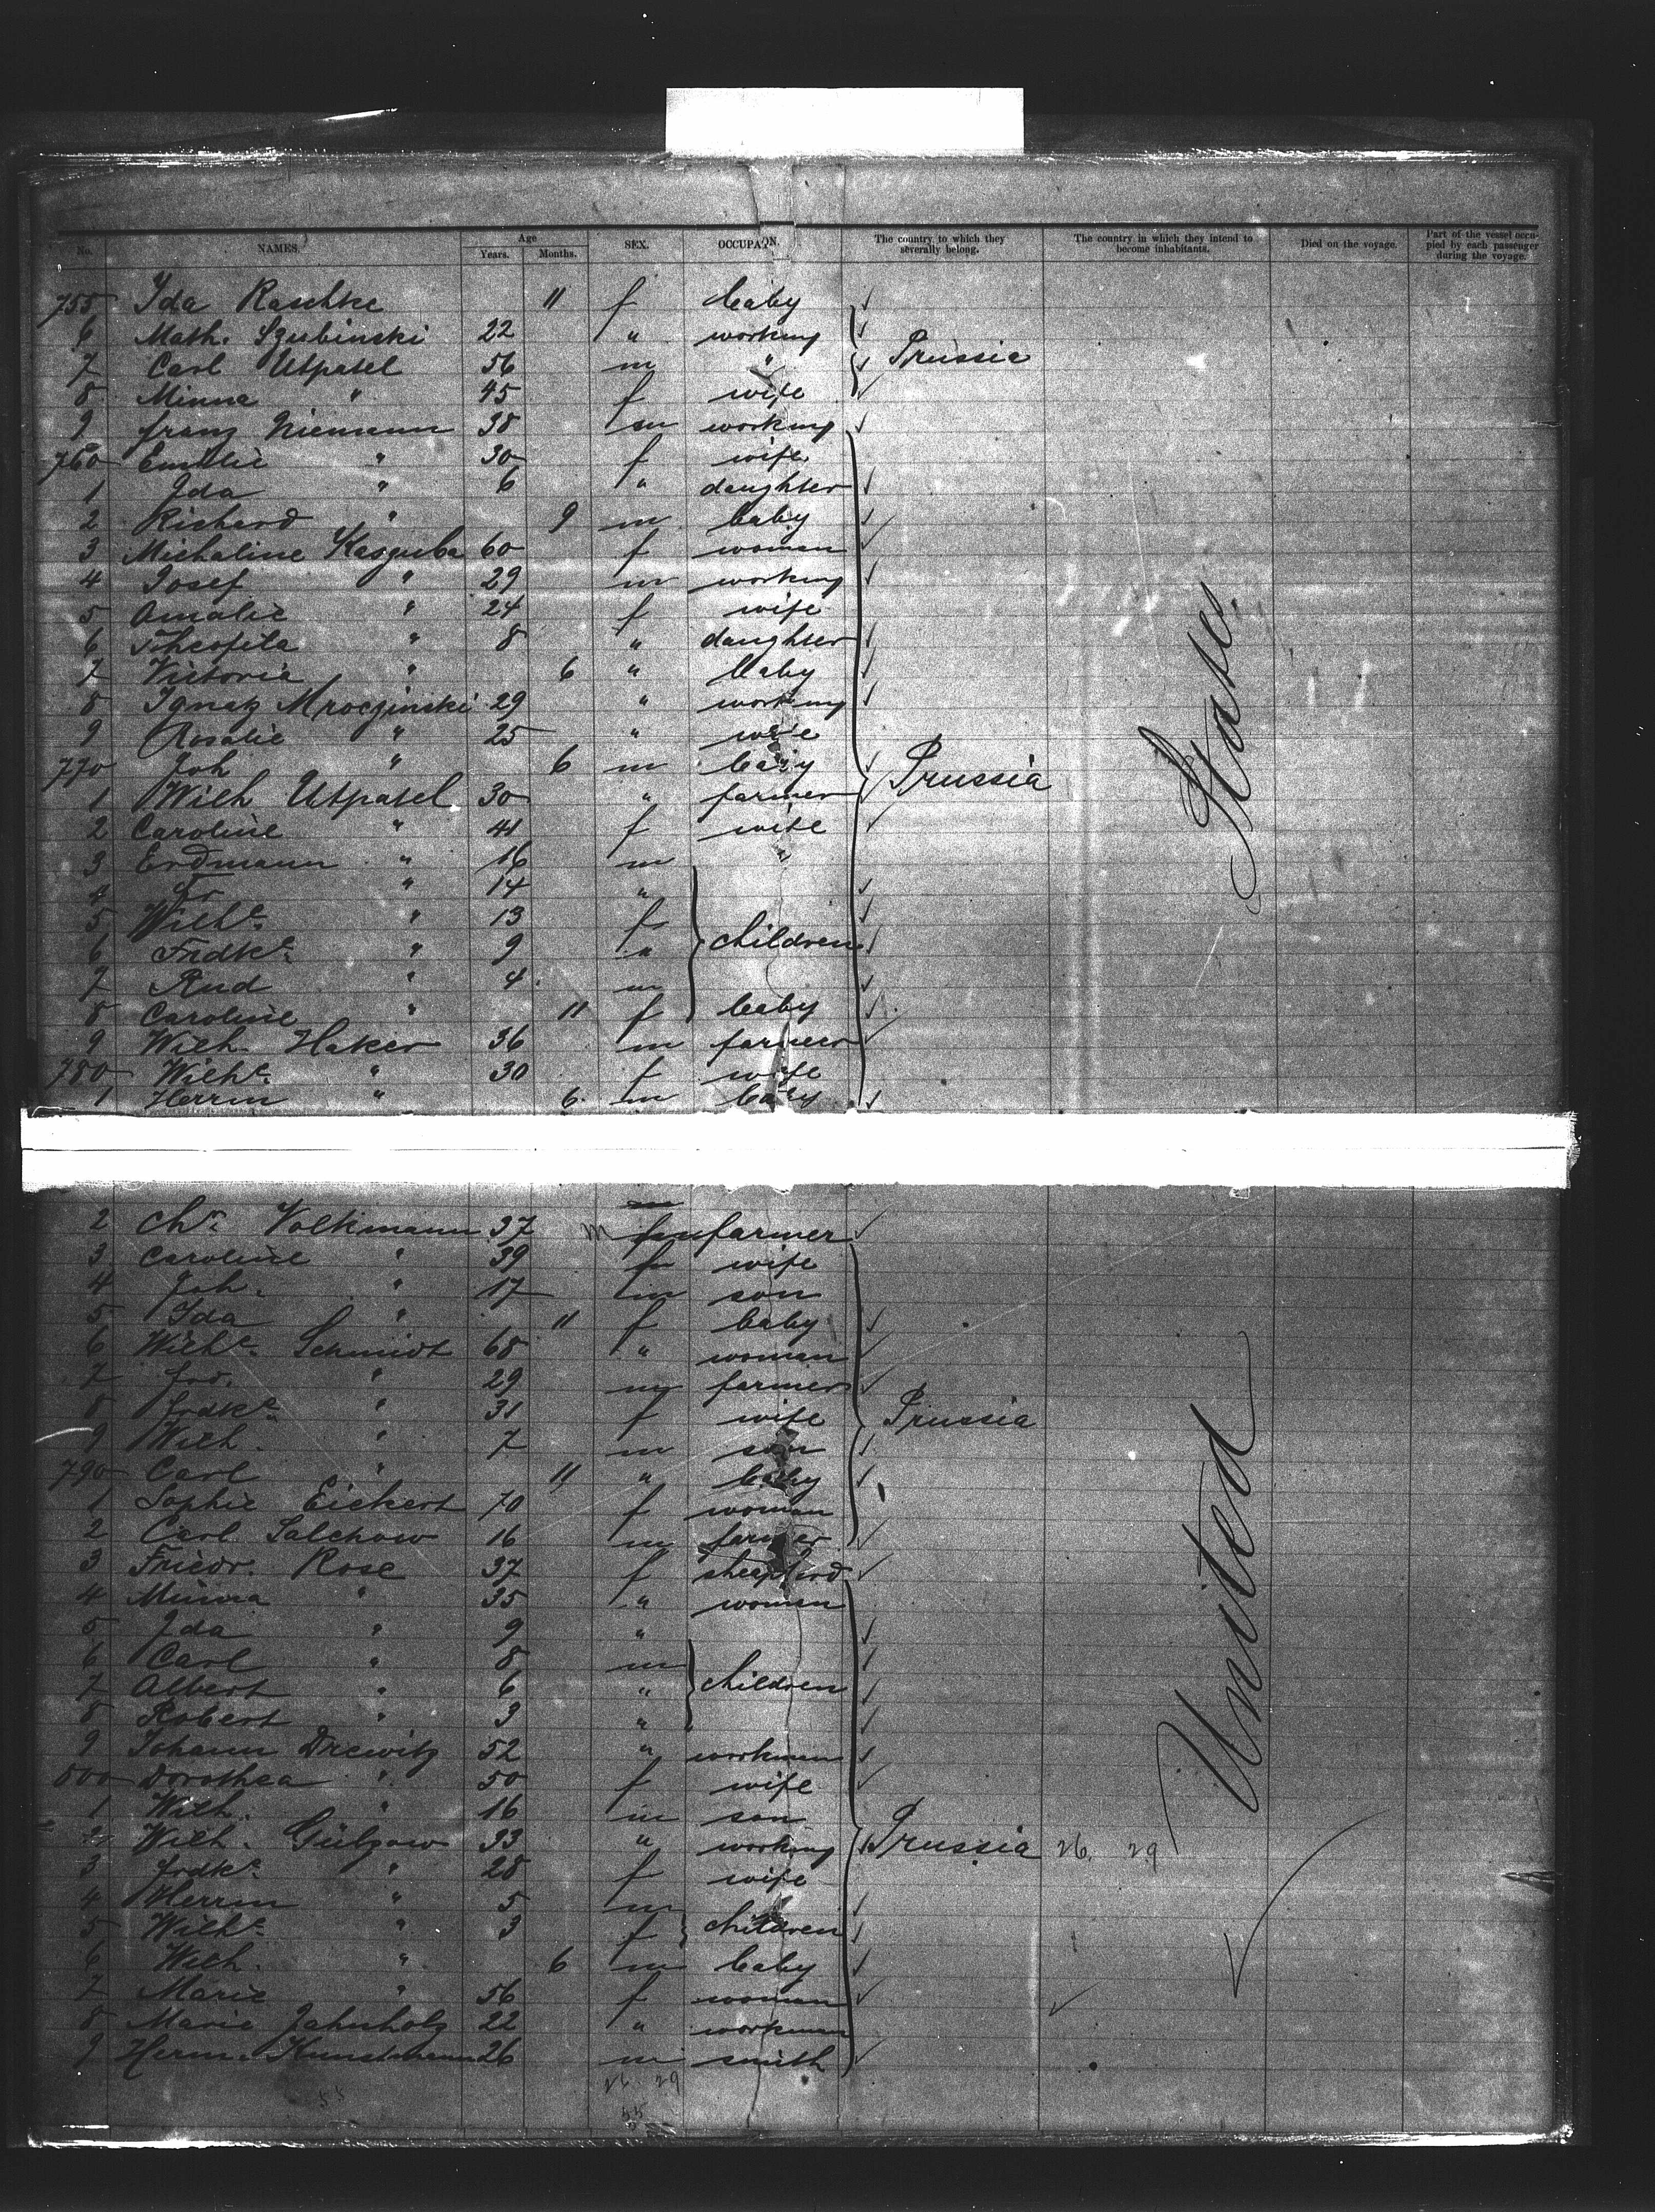 No. NAMES. Age Years. Months. SEX. OCCUPA N. The country to which they severally belong. The country in which they intend to become inhabitants. Died on the voyage. Part of the vessel occupied by each passenger during the voyage.
755 Ida Raschke 11 f baby
6 Math. Szubinski 22 " working
7 Carl Utpatel 56 m " Prussia
8 Minna " 45 f wife
9 franz Niemann 38 m working
760 Emilie " 30 f wife
1 Ida " 6 " daughter
2 Richard " 9 m baby
3 Michaline Kasguba 60 f woman
4 Josef " 29 m working
5 Amalie " 24 f wife
6 Theofila " 8 " daughter
7 Victoria " 6 " baby
8 Ignatz Mroczinski 29 " working
9 Rosalie " 25 " wife
770 Joh " 6 m baby Prussia
1 Wilh Utpatel 30 " farmer
2 Caroline " 41 f wife
3 Erdmann " 16 m "
4 Fr " 14 "
5 Wilhe " 13 f
6 Frdke " 9 " children
7 Rud " 4 m
8 Caroline " 11 f baby
9 Wilh. Haker 36 m farmer
780 Wilhe " 30 f wife
1 Herrm " 6 m baby
States.
2 Chr. Volkmann 37 m farmer
3 Caroline " 39 f wife
4 Joh. " 17 m son
5 Ida " 11 f baby
6 Wilhe. Schmidt 68 " woman
7 Frd. " 29 m farmer
8 Frdke " 31 f wife Prussia
9 Wilh. " 7 m son
790 Carl " 11 " baby
1 Sophie Eickert 70 f woman
2 Carl Salchow 16 m farmer
3 Friedr. Rose 37 f shepherd
4 Minna " 35 " woman
5 Ida " 9 "
6 Carl " 8 m
7 Albert " 6 " children
8 Robert " 3 "
9 Johann Drewitz 52 " workman
800 Dorothea " 50 f wife
1 Wilh. " 16 m son
2 Wilh. Gülzow 33 " working Prussia 26. 29
3 Frdke " 28 f wife
4 Herrm " 5 m
5 Wilhe " 3 f children
6 Wilh. " 6 m baby
7 Marie " 56 f woman
8 Marie Jahnholz 22 " workman
9 Herm. Kunstmann 26 m smith
26 29
55
55
United